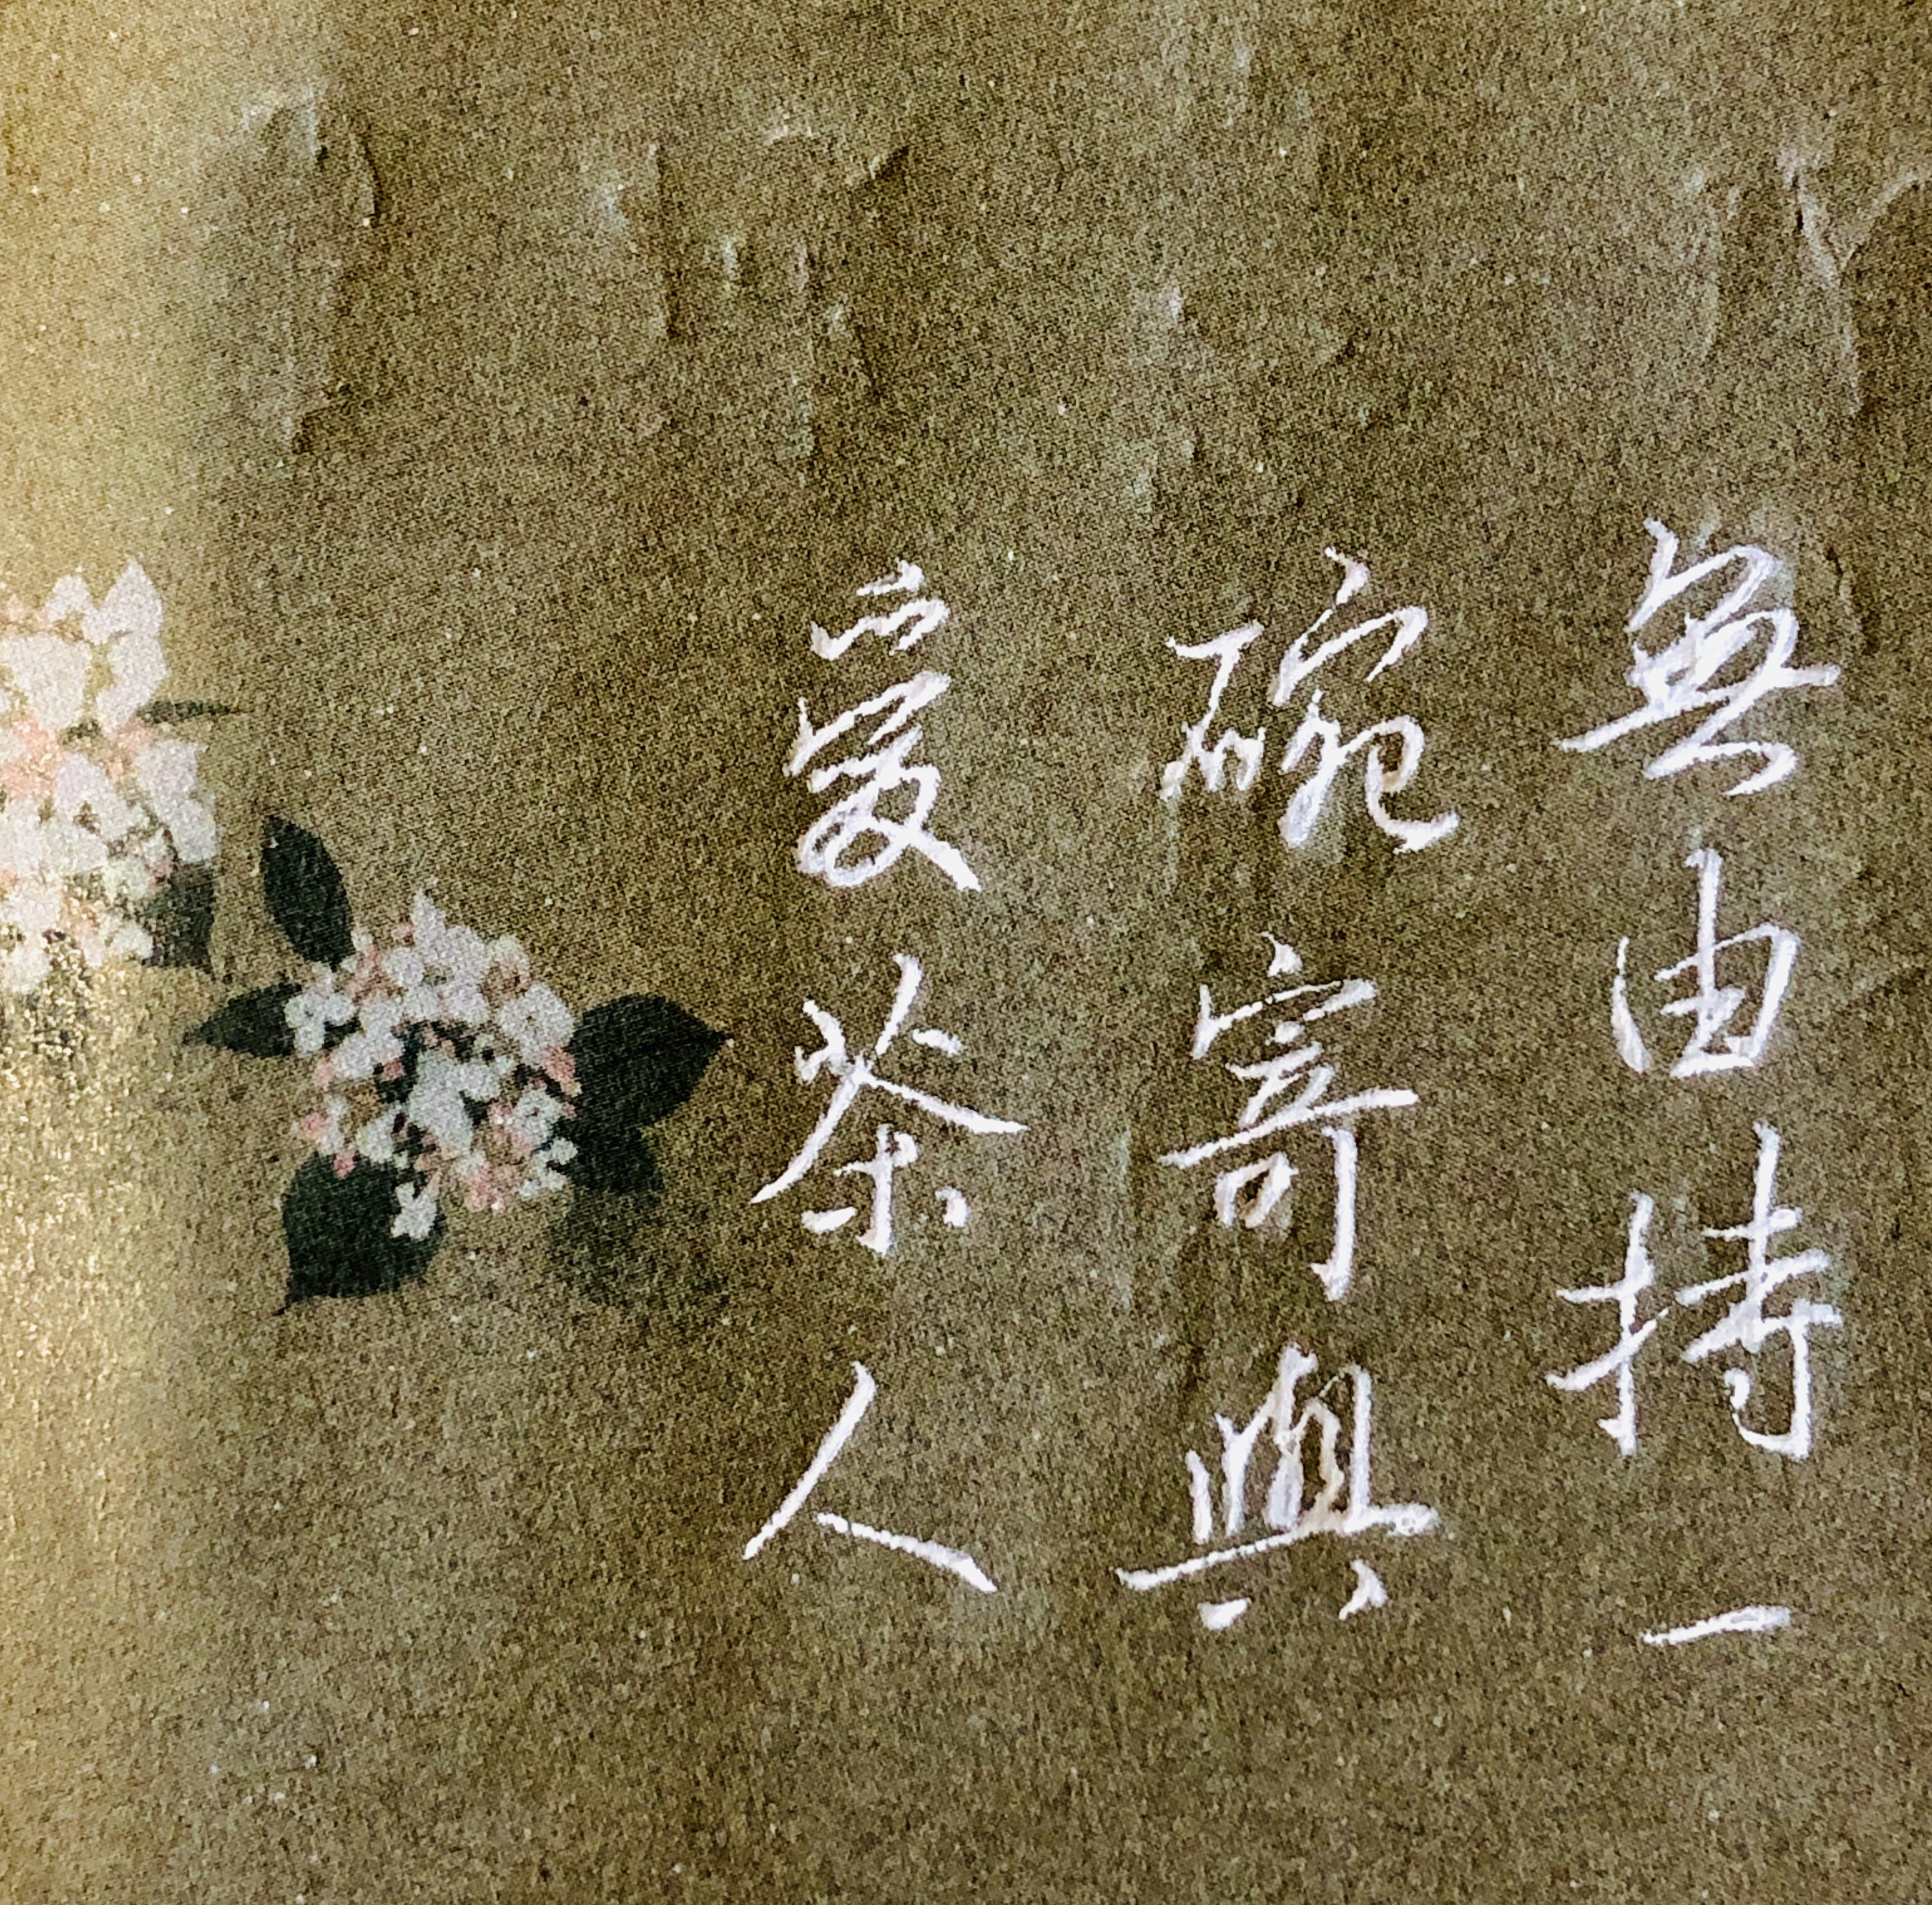 無由持一
碗寄與
愛茶人